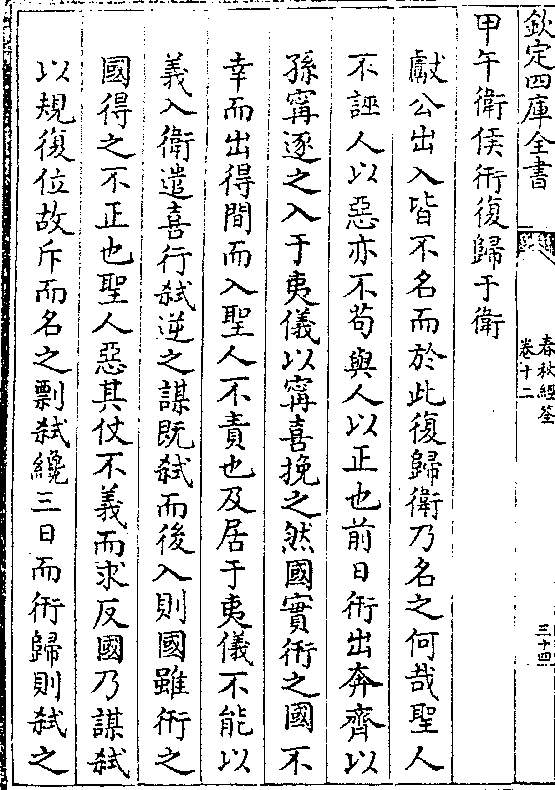 欽定四庫全書
春秋經筌
卷十二
三十四
甲午衛侯衎復歸于衛
獻公出入皆不名而於此復歸衛乃名之何哉聖人
不誣人以惡亦不苟與人以正也前日衎出奔齊以
孫寗逐之入于夷儀以寗喜挽之然國實衎之國不
幸而出得間而入聖人不責也及居于夷儀不能以
義入衛遣喜行弑逆之謀既弑而後入則國雖衎之
國得之不正也聖人惡其仗不義而求反國乃謀弑
以規復位故斥而名之剽弑纔三日而衎歸則弑之